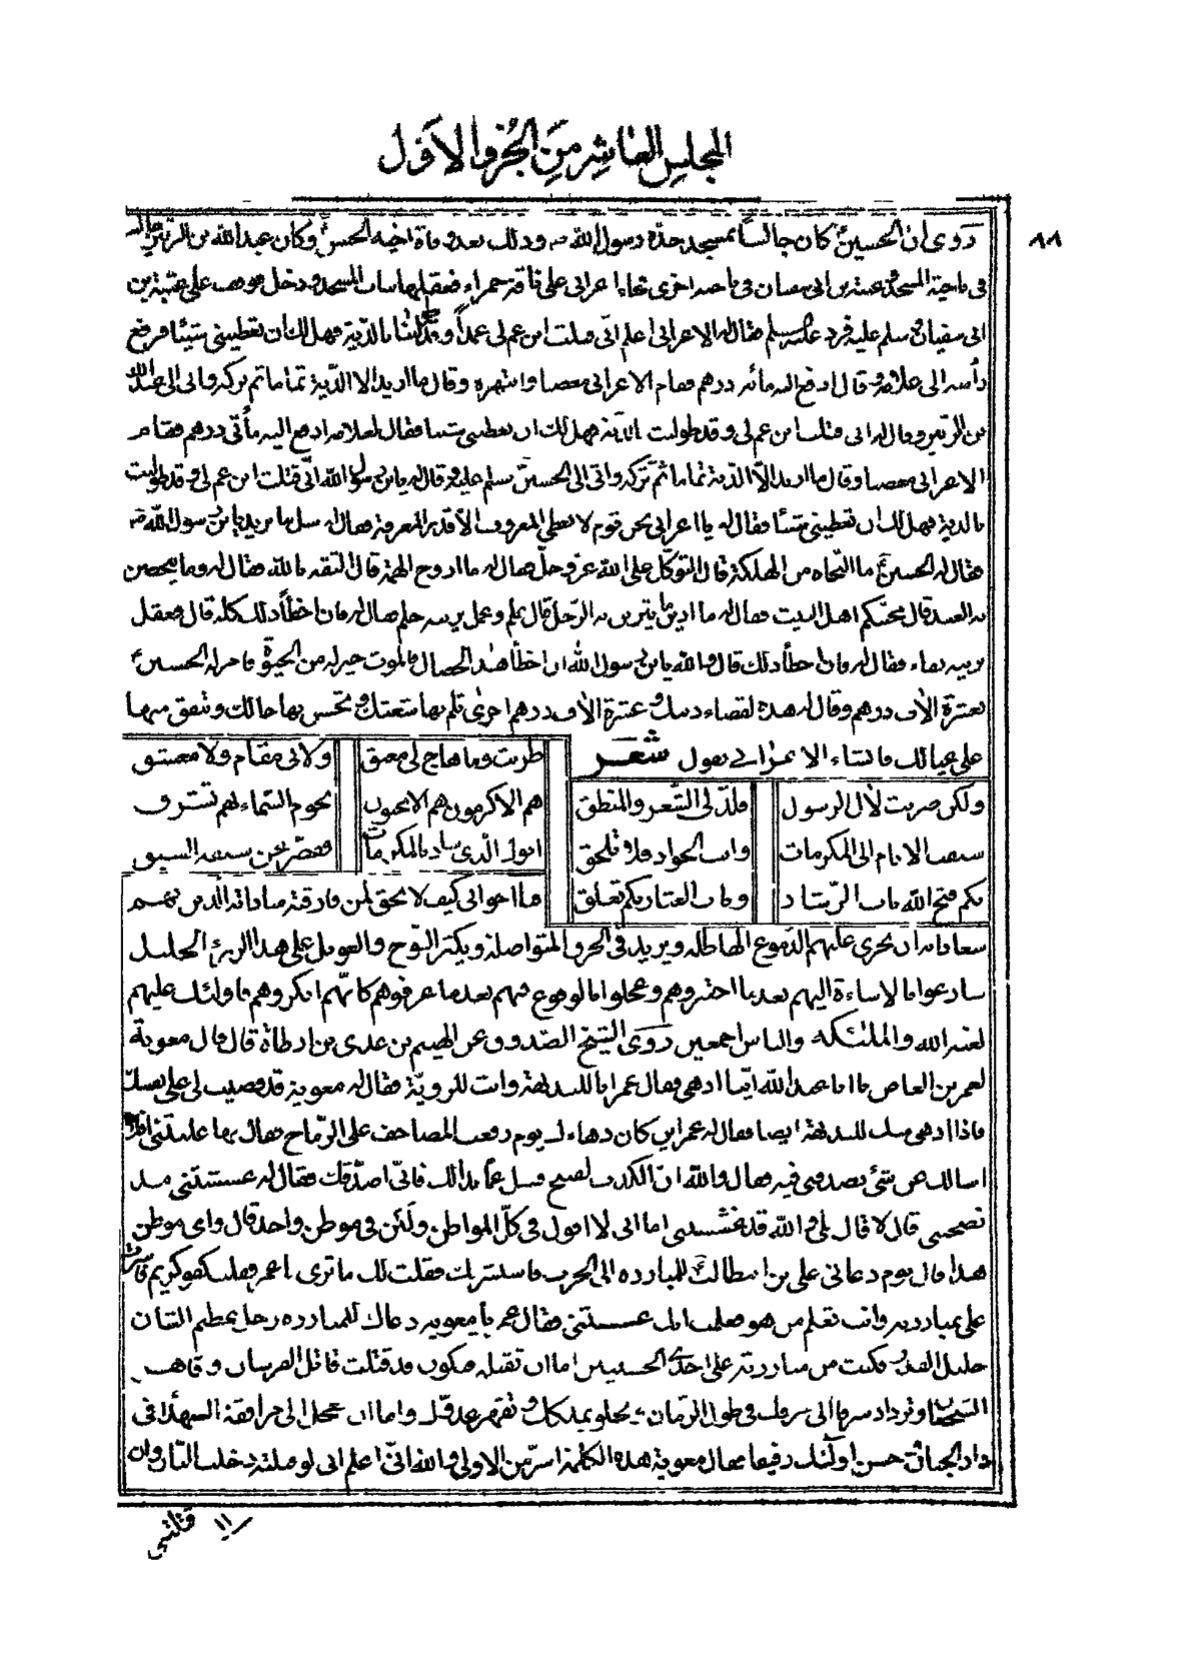 المجلس العاشر من الجزو الاول
٨٨
روى ان الحسين ع كان جالسا بمسجد جده رسول الله ص وذلك بعد وفاة اخيه الحسن ع وكان عبد الله بن الزبير جالسا
فى ناحية المسجد وعتبة بن ابى سفيان فى ناحية اخرى فجاء اعرابى على ناقة حمراء فعقلها بباب المسجد ودخل فوقف على عتبة بن
ابى سفيان فسلم عليه فرد عليه السلام فقال له الاعرابى اعلم انى قتلت ابن عم لى عمدا وطولبت بالدية فهل لك ان تعطينى شيئا فرفع
رأسه الى غلامه وقال ادفع اليه مائة درهم فقام الاعرابى مغضبا وانتهره وقال ما اريد الا الدية تماما ثم تركه واتى الى عبد الله
بن الزبير وقال له انى قتلت ابن عم لى وقد طولبت الدية فهل لك ان تعطينى شيئا فقال لغلامه ادفع اليه مأتى درهم فقام
الاعرابى مغضبا وقال ما اريد الا الدية تماما ثم تركه واتى الى الحسين ع سلم عليه وقال له يابن رسول الله انى قتلت ابن عم لى وقد طولبت
بالدية فهل لك ان تعطينى شيئا فقال له يا اعرابى نحن قوم لا نعطى المعروف الا قدر المعرفة فقال له سل ما تريد يابن رسول الله ص
فقال له الحسين ع ما النجاة من الهلكة قال التوكل على الله عز وجل فقال له ما اروح الهمة قال الثقة بالله فقال له وما يتحصن
به العبد قال بحبكم اهل البيت فقال له ما ازين ما يتزين به الرجل قال علم وعمل يزينه حلم فقال له فان اخطأ ذلك كله قال فعقل
يزينه بهاء فقال له فان اخطأ ذلك قال والله يابن رسول الله ان اخطأ هذه الخصال فالموت خير له من الحيوة فامر له الحسين ع
بعشرة الاف درهم وقال له هذه لقضاء دينك وعشرة الاف درهم اخرى تلم بها شعثك وتحسن بها حالك وتنفق منها
على عيالك فانشاء الاعرابى يقول شعر
طربت وما هاج لى معبق ولا لى مقام ولا معشق
ولكن طربت لال الرسول فلذ لى الشعر والمنطق
هم الاكرمون هم الانجبون نجوم السماء بهم تشرق
سبقت الانام الى المكرمات وانت الجواد فلا تلحق
ابوك الذى ساد بالمكرمات فقصر عن سبقه السبق
بكم فتح الله باب الرشاد وباب العثار بكم تغلق
فيا اخوانى كيف لا يحق لمن فارقته ساداته الذين بهم
سعاداته ان يجرى عليهم الدموع الهاطلة ويزيد فى الحزن المتواصلة ويكثر النوح والعويل على هذا الرزء الجليل
سارعوا بالاساءة اليهم بعد ما اختبروهم وعجلوا بالوقوع فيهم بعد ما عرفوهم كانهم انكروهم فاولئك عليهم
لعنة الله والملئكة والناس اجمعين روى الشيخ الصدوق عن الهيثم بن عدى بن ارطاة قال قال معوية
لعمر بن العاص يا ابا عبد الله اينا ادهى فقال عمر انا للبديهة وانت للروية فقال له معوية قد قضيت لى على نفسك
فانا ادهى منك للبديهة ايضا فقال له عمر اين كان دهاءك يوم رفعت المصاحف على الرماح فقال بها غلبتنى افلا
اسالك عن شئ تصدقنى فيه فقال والله ان الكذب لقبيح فسل عما بدالك فانى اصدقك فقال له غششتنى منذ
نصحتنى قال لا قال بلى والله قد غششتنى اما انى لا اقول فى كل المواطن ولكن فى موطن واحد قال واى موطن
هذا قال يوم دعانى على بن ابيطالب ع للمبارزة الى الحرب فاستشرتك فقلت لك ما ترى يا عمر فقلت كفو كريم فاشرت
على بمبارزته وانت تعلم من هو فعلمت انك غششتنى فقال عمر يا معوية دعاك للمبارزة رجل عظيم الشان
جليل القدر فكنت من مبارزته على احدى الحسنيين اما ان تقتله فتكون قد قتلت قاتل الفرسان وقاهر
الشجعان وتزداد شرفا الى شرفك فى طول الزمان ويخلو بملكك وتقهر عدوك واما ان تعجل الى مرافقة الشهداء فى
دار الجنان وحسن اولئك رفيقا فقال معوية هذه الكلمة اشر من الاولى والله انى اعلم انى لو قتلته دخلت النار وان
قتلنى
١١